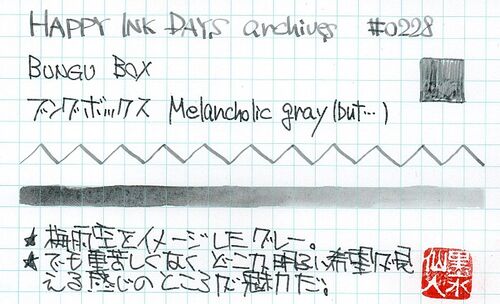 HAPPY INK DAYS archives #0228
BUNGU BOX
ブングボックス Melancholic gray (but…)
★ 梅雨空をイメージしたグレー。
★ でも重苦しくなく、どこか明るい希望が見
える感じのところが魅力だ。
黒水
仙人